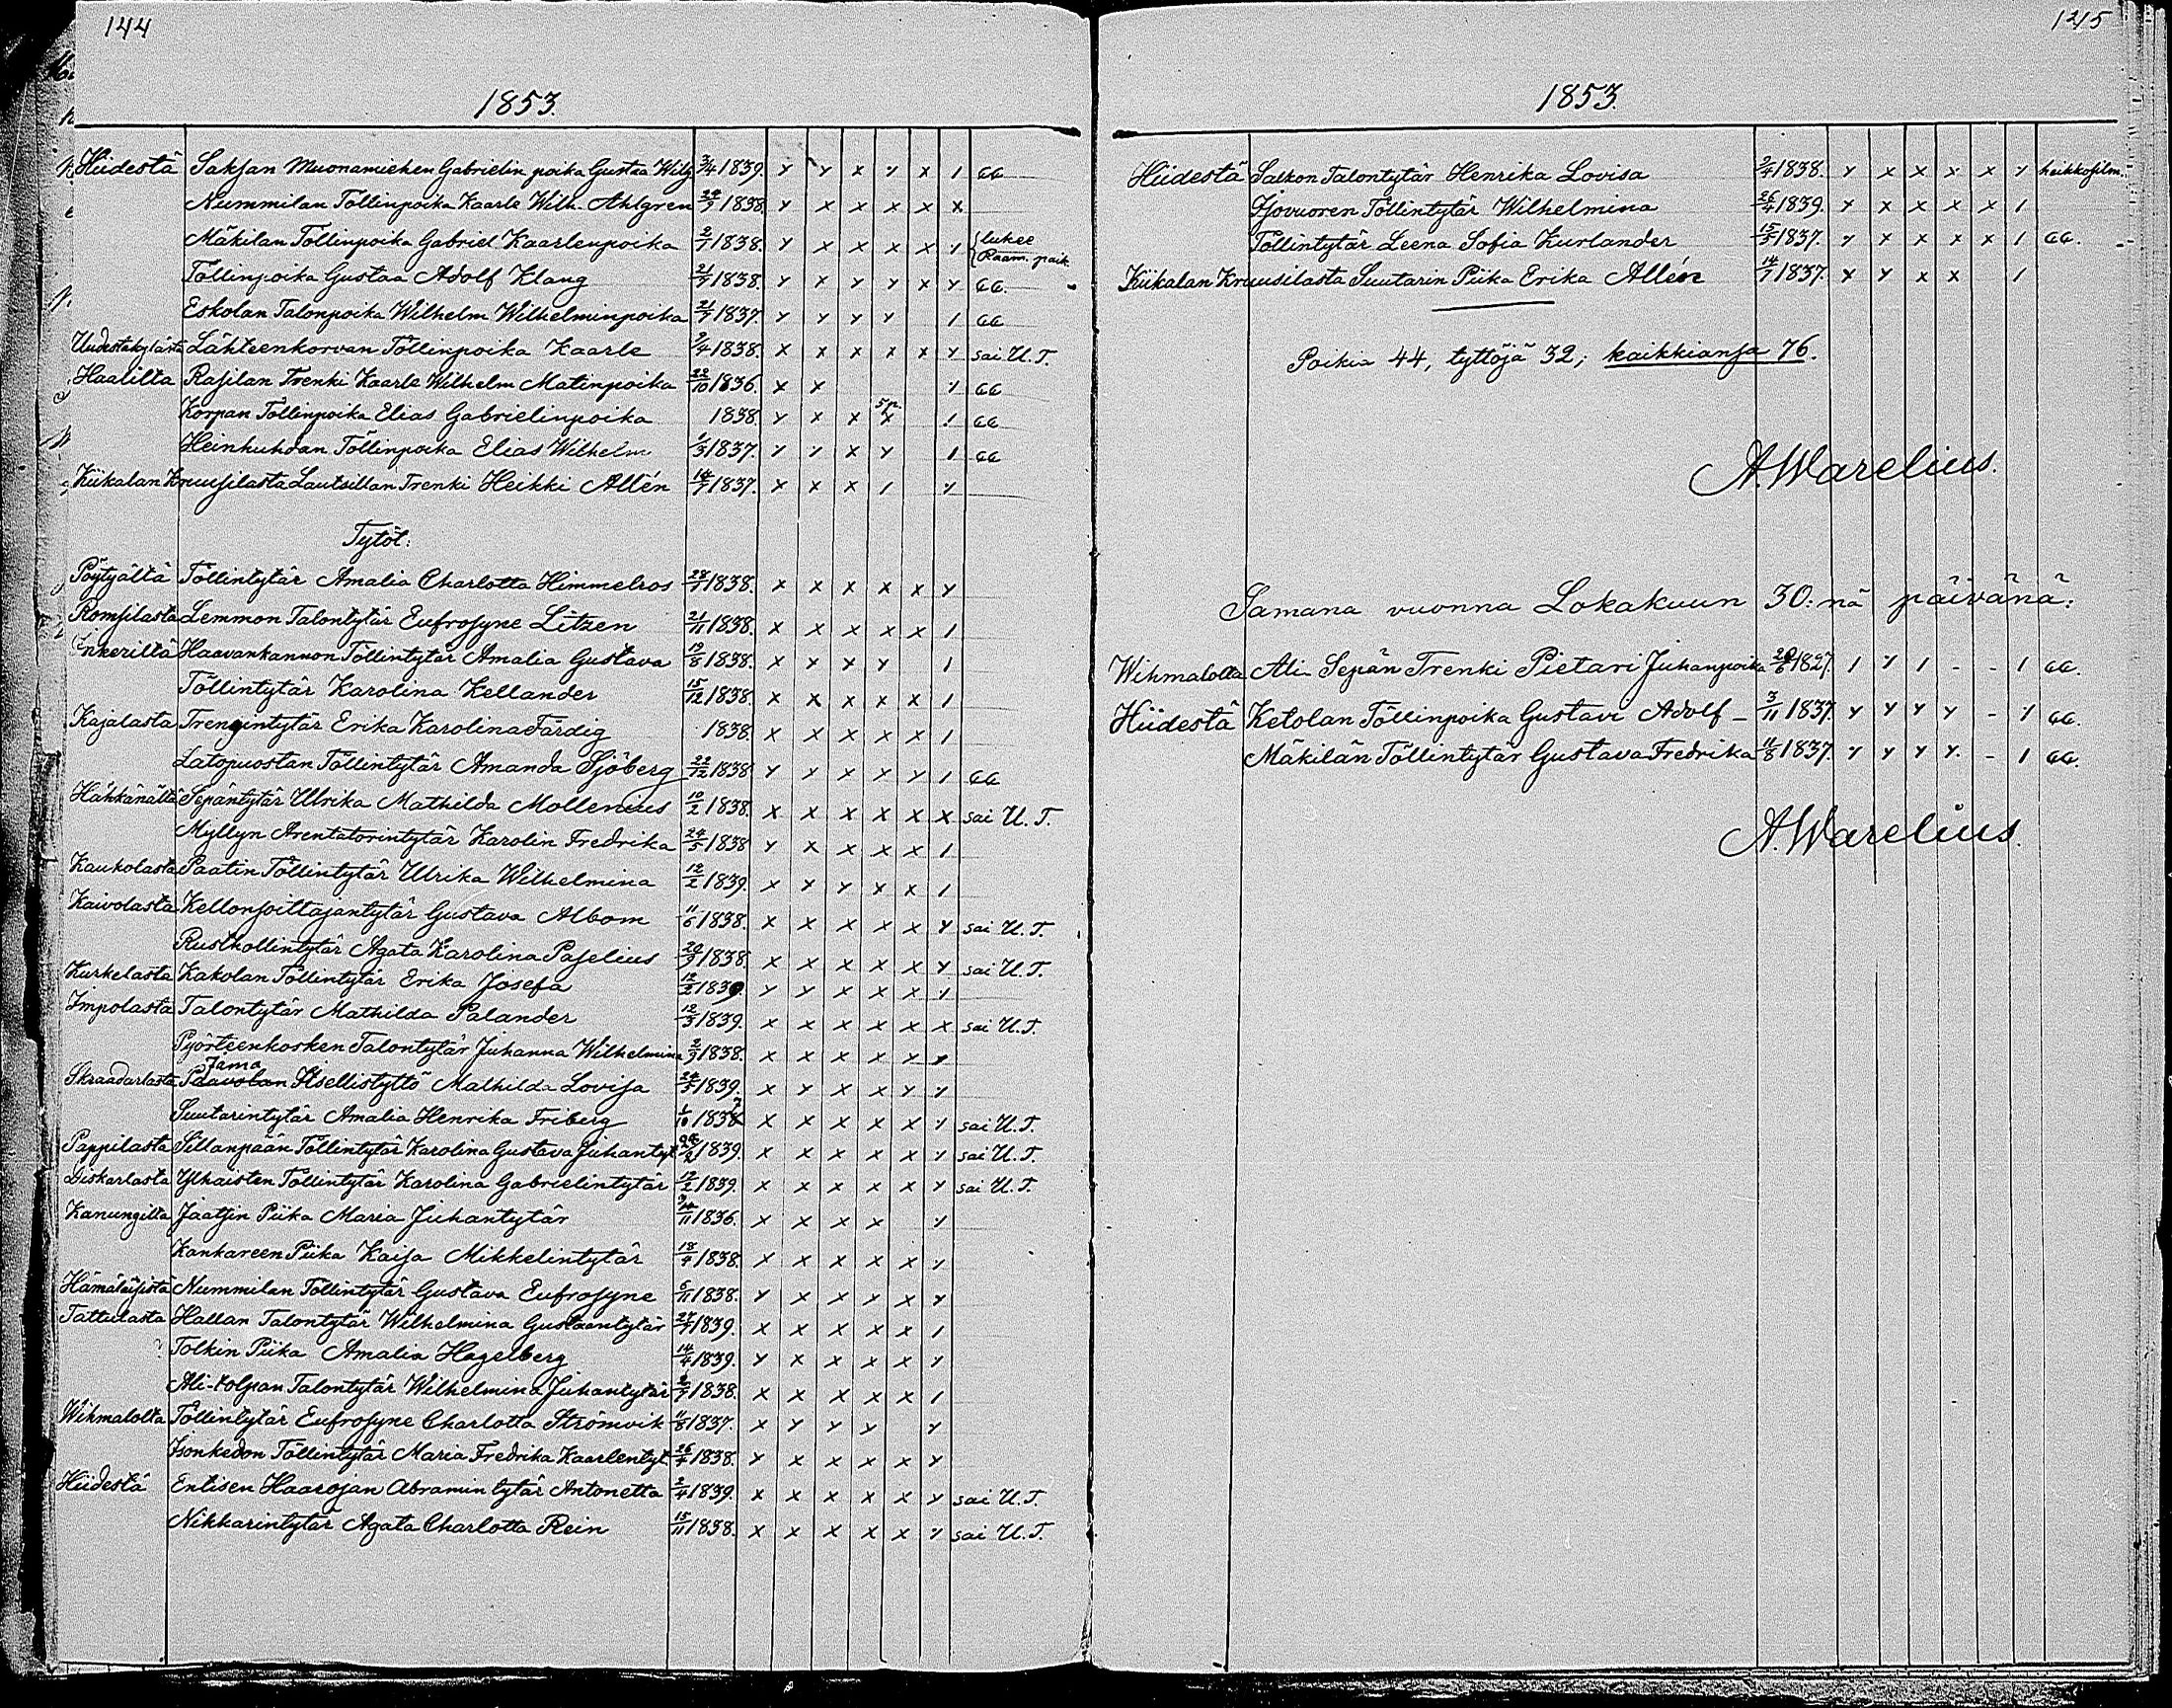 144
1853.
Hiidestä Saksan Muonamiehen Gabrielin poika Gustaa Wilh. 3/4 1839. x x x x x 1 cc
Nummilan Töllinpoika Kaarle Wilh. Ahlgren 1838. x x x x x x
Mäkilan Töllinpoika Gabriel Kaarlenpoika 2/7 1838. x x x x x x lukee Raam. paik.
Töllinpoika Gustaa Adolf Klang 21/7 1838. x x x x x x cc.
Eskolan Talonpoika Wilhelm Wilhelminpoika 21/7 1837. x x x x 1 cc
Uudestakylästä Lähteenkorvan Töllinpoika Kaarle 9/4 1838. x x x x x x sai U.T.
Haalilta Rasilan Trenki Kaarle Wilhelm Matinpoika 22/10 1836. x x x cc
Korpan Töllinpoika Elias Gabrielinpoika 1838 x x x x 1 cc
Heinhuhdan Töllinpoika Elias Wilhelm 1/3 1837. x x x x 1 cc
Kiikalan Kruusilasta Lautsillan Trenki Heikki Allén 14/7 1837. x x x 1 x
Tytöt:
Pöytyältä Töllintytär Amalia Charlotta Himmelros 28/7 1838. x x x x x x
Romsilasta Lemmon Talontytär Eufrosyne Litzen 21/11 1838. x x x x x 1
Inkeriltä Haavankannon Töllintytär Amalia Gustava 19/8 1838. x x x x 1
Töllintytär Karolina Kellander 15/12 1838. x x x x x 1
Kajalasta Trengintytär Erika Karolina Färdig 1838. x x x x x 1
Latopuostan Töllintytär Amanda Sjöberg 22/12 1838 x x x x x 1 cc
Häkkänältä Sepäntytär Ulrika Mathilda Mollenius 10/2 1838. x x x x x x sai U.T.
Myllyn Arentatorintytär Karolin Fredrika 24/5 1838 x x x x x 1
Kaukolasta Paatin Töllintytär Ulrika Wilhelmina 12/2 1839. x x x x x 1
Kaivolasta Kellonsoittajantytär Gustava Albom 11/6 1838. x x x x x x sai U.T.
Rusthollintytär Agata Karolina Paselius 20/9 1838. x x x x x x sai U.T.
Kurkelasta Kakolan Töllintytär Erika Josefa 12/2 1839. x x x x x x
Impolasta Talontytär Mathilda Palander 12/3 1839. x x x x x x sai U.T.
Pyörteenkosken Talontytär Juhanna Wilhelmina 2/9 1838. x x x x x x
Skraadarlasta Paavolan Itsellistyttö Mathilda Lovisa 24/5 1839. x x x x x x
Suutarintytär Amalia Henrika Friberg 1/10 1838 x x x x x x sai U.T.
Pappilasta Sillanpään Töllintytär Karolina Gustava Juhantyt. 1839. x x x x x x sai U.T.
Diskarlasta Ylhaisten Töllintytär Karolina Gabrielintytär 12/2 1839. x x x x x x sai U.T.
Kanungilta Jaatsin Piika Maria Juhantytär 1836. x x x x x
Kankareen Piika Kaisa Mikkelintytär 18/4 1838. x x x x x x
Hämäläisistä Nummilan Töllintytär Gustava Eufrosyne 6/11 1838. x x x x x x
Tattulasta Hallan Talontytär Wilhelmina Gustaantytär 27/7 1839. x x x x x 1
Tolkin Piika Amalia Hagelberg 14/4 1839. x x x x x x
Ali-Kolpan Talontytär Wilhelmina Juhantytär 1838. x x x x x 1
Wihmalolta Töllintytär Eufrosyne Charlotta Strömvik 11/8 1837. x x x x x
Isonkedon Töllintytär Maria Fredrika Kaarlentyt. 26/4 1838. x x x x x x
Hiidestä Entisen Haarojan Abramin tytär Antonetta 2/4 1839. x x x x x x sai U.T.
Nikkarintytär Agata Charlotta Rein 15/11 1838. x x x x x x sai U.T.
145
1853.
Hiidestä Salkon Talontytär Henrika Lovisa 2/4 1838. x x x x x x heikkosilm.
Isovuoren Töllintytär Wilhelmina 26/4 1839. x x x x x 1
Töllintytär Leena Sofia Kurlander 15/5 1837. x x x x x 1 cc.
Kiikalan Kruusilasta Suutarin Piika Erika Allén 14/7 1837. x x x x 1
Poikia 44, tyttöjä 32; kaikkiansa 76.
A. Warelius.
Samana vuonna Lokakuun 30:nä päivänä:
Wihmalolta Ali Sepän Trenki Pietari Juhanpoika 1827. 1 x 1 - - 1 cc.
Hiidestä Ketolan Töllinpoika Gustavi Adolf - 3/11 1837 x x x x - x cc.
Mäkilän Töllintytär Gustava Fredrika 11/8 1837. x x x x - 1 cc.
A. Warelius.